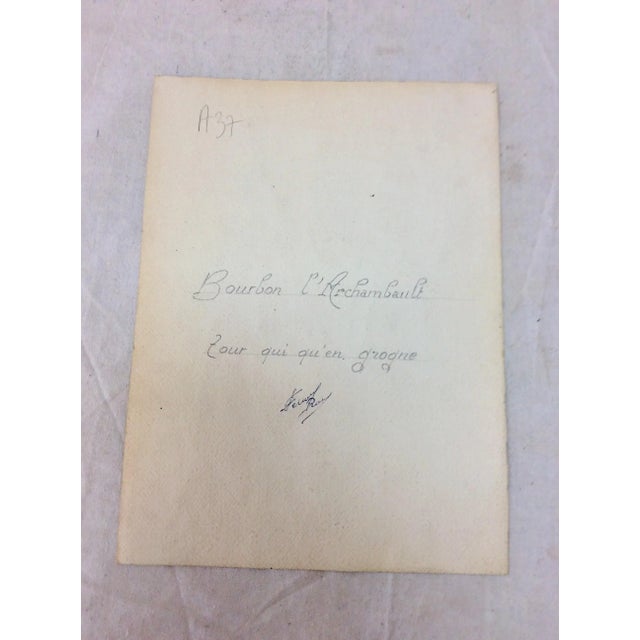 A37
Bourbon l'Archambault
Tour qui qu'en grogne